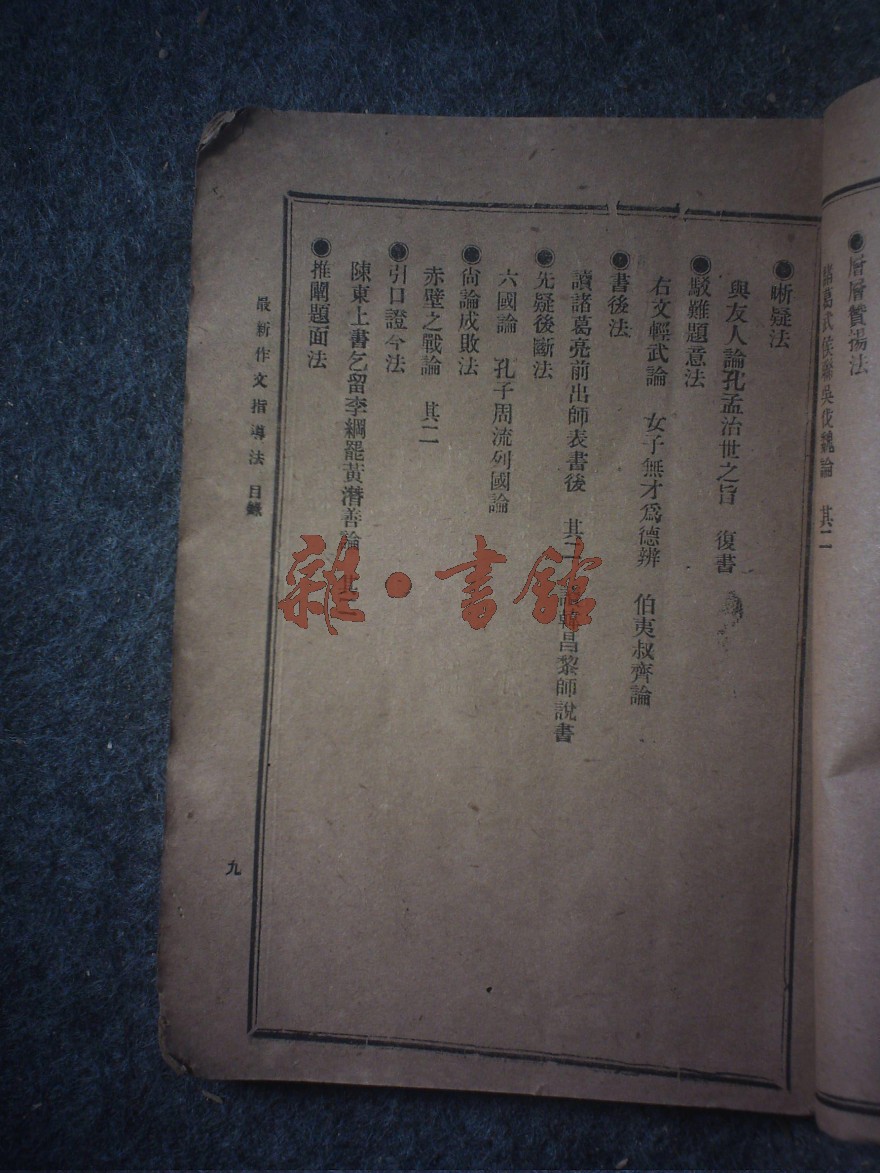 ●層層贊揚法
諸葛武侯聯吳伐魏論　其二
●晰疑法
與友人論孔孟治世之旨　復書
●駁難題意法
右文輕武論　女子無才爲德辨　伯夷叔齊論
●書後法
讀諸葛亮前出師表書後　其二　讀韓昌黎師說書
●先疑後斷法
六國論　孔子周流列國論
●尙論成敗法
赤壁之戰論　其二
●引口證今法
陳東上書乞留李綱罷黃潛善論　其二
●推闡題面法
最新作文指導法　目錄
九
雜·書館